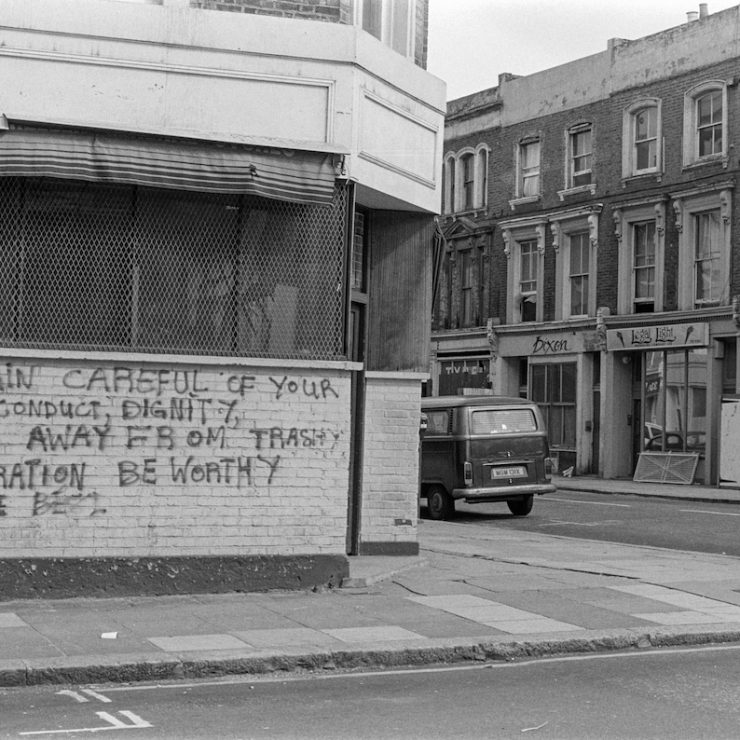 IN CAREFUL OF YOUR
CONDUCT, DIGNITY,
AWAY FROM TRASHY
RATION BE WORTHY
E BEST
Dixon
Legal Light